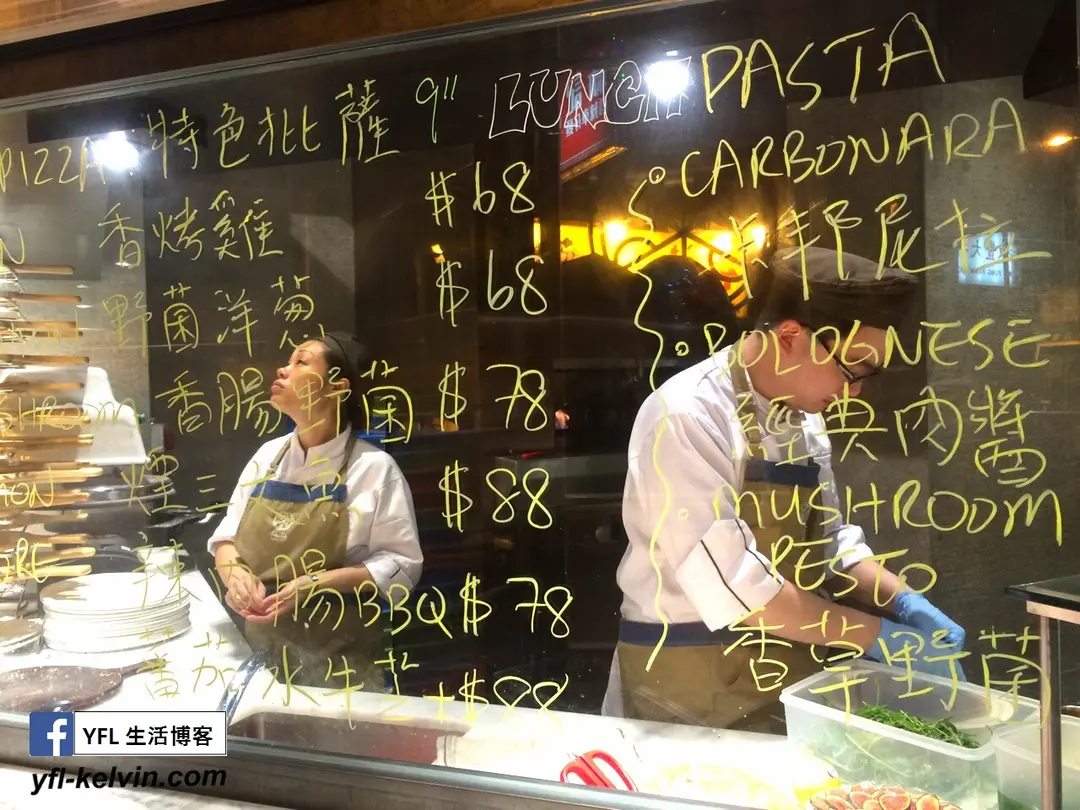 PIZZA 特色批薩 9"
香烤雞 $68
野菌洋葱 $68
香腸野菌 $78
煙三文魚 $88
辣肉腸BBQ $78
蕃茄水牛芝士 $88
LUNCH PASTA
CARBONARA
卡邦尼拉
BOLOGNESE
經典肉醬
MUSHROOM
PESTO
香草野菌
YFL 生活博客
yfl-kelvin.com